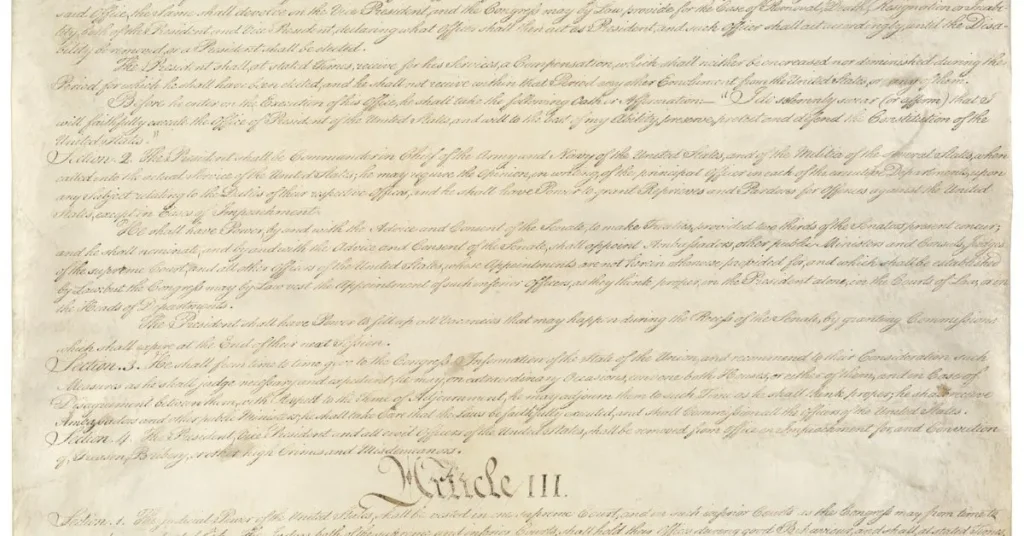 said Office, the same shall devolve on the Vice President, and the Congress may by Law, provide for the Case of Removal, Death, Resignation or Inabi-
lity, both of the President and Vice President, declaring what Officer shall then act as President, and such Officer shall act accordingly, until the Disa-
bility be removed, or a President shall be elected.
The President shall, at stated Times, receive for his Services, a Compensation, which shall neither be encreased nor diminished during the
Period for which he shall have been elected, and he shall not receive within that Period any other Emolument from the United States, or any of them.
Before he enter on the Execution of his Office, he shall take the following Oath or Affirmation— "I do solemnly swear (or affirm) that I
will faithfully execute the Office of President of the United States, and will to the best of my Ability, preserve, protect and defend the Constitution of the
United States."
Section 2. The President shall be Commander in Chief of the Army and Navy of the United States, and of the Militia of the several States, when
called into the actual Service of the United States; he may require the Opinion, in writing, of the principal Officer in each of the executive Departments, upon
any Subject relating to the Duties of their respective Offices, and he shall have Power to grant Reprieves and Pardons for Offences against the United
States, except in Cases of Impeachment.
He shall have Power, by and with the Advice and Consent of the Senate, to make Treaties, provided two thirds of the Senators present concur;
and he shall nominate, and by and with the Advice and Consent of the Senate, shall appoint Ambassadors, other public Ministers and Consuls, Judges
of the supreme Court, and all other Officers of the United States, whose Appointments are not herein otherwise provided for, and which shall be established
by Law: but the Congress may by Law vest the Appointment of such inferior Officers, as they think proper, in the President alone, in the Courts of Law, or in
the Heads of Departments.
The President shall have Power to fill up all Vacancies that may happen during the Recess of the Senate, by granting Commissions
which shall expire at the End of their next Session.
Section 3. He shall from time to time give to the Congress Information of the State of the Union, and recommend to their Consideration such
Measures as he shall judge necessary and expedient; he may, on extraordinary Occasions, convene both Houses, or either of them, and in Case of
Disagreement between them, with Respect to the Time of Adjournment, he may adjourn them to such Time as he shall think proper; he shall receive
Ambassadors and other public Ministers; he shall take Care that the Laws be faithfully executed, and shall Commission all the Officers of the United States.
Section 4. The President, Vice President and all civil Officers of the United States, shall be removed from Office on Impeachment for, and Conviction
of, Treason, Bribery, or other high Crimes and Misdemeanors.
Article III.
Section 1. The judicial Power of the United States, shall be vested in one supreme Court, and in such inferior Courts as the Congress may from time to
The Judges, both of the supreme and inferior Courts, shall hold their Offices during good Behaviour, and shall, at stated Times,